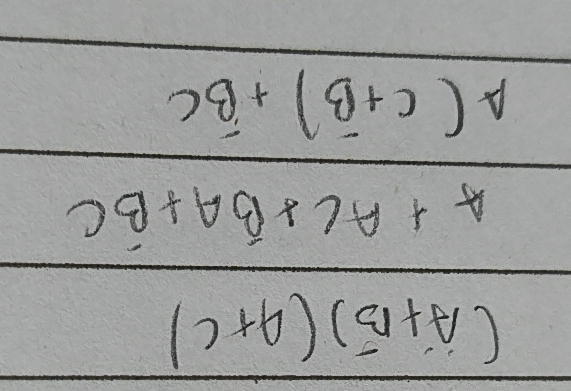 (A+B̄)(A+C)
A + AC + B̄A + B̄C
A(C+B̄) + B̄C